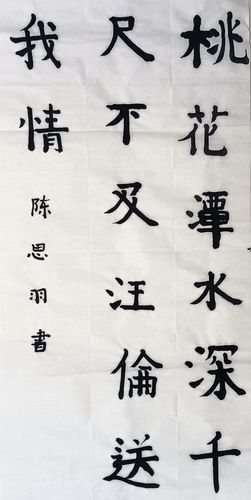 桃花潭水深千
尺不及汪倫送
我情
陈思羽書